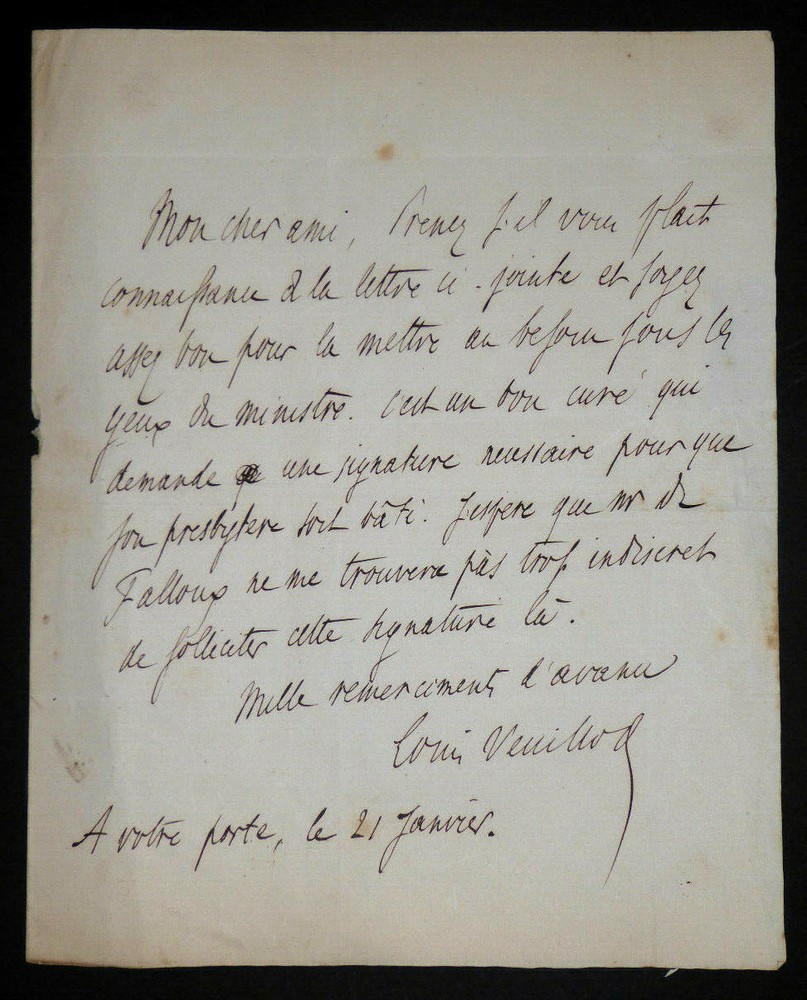 Mon cher ami, Prenez s'il vous plait
connaissance de la lettre ci-jointe et soyez
assez bon pour la mettre au besoin sous les
yeux du ministre. c'est un bon curé qui
demande une signature necessaire pour que
son presbytere soit bâti. J'espere que mr de
Falloux ne me trouvera pas trop indiscret
de solliciter cette signature là.
Mille remerciments d'avance
Louis Veuillot
A votre porte, le 21 Janvier.